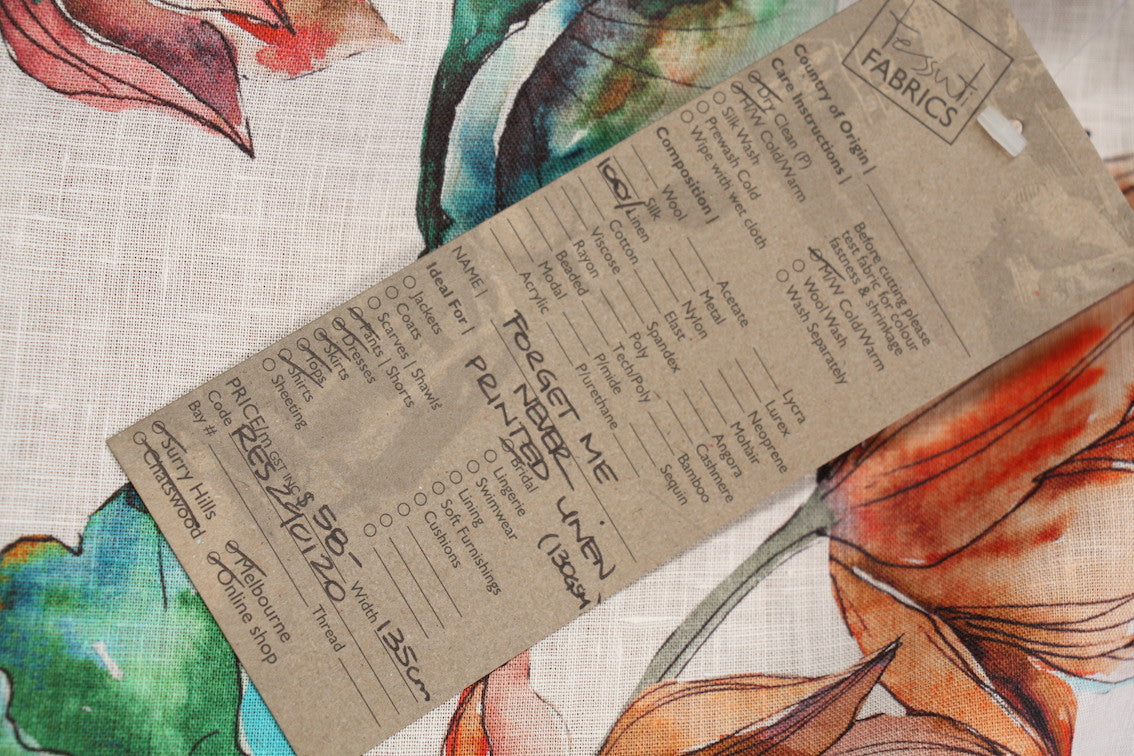 Tessuti
FABRICS
Country of Origin |
Care Instructions |
Dry Clean (P)
H/W Cold/Warm
Silk Wash
Prewash Cold
Wipe with wet cloth
Before cutting please
test fabric for colour
fastness & shrinkage
M/W Cold/Warm
Wool Wash
Wash Separately
Composition |
Wool
Silk
100% Linen
Cotton
Viscose
Rayon
Beaded
Modal
Acrylic
Acetate
Metal
Nylon
Elast
Spandex
Poly
Tech/Poly
P/mide
P/urethane
Lycra
Lurex
Neoprene
Mohair
Angora
Cashmere
Bamboo
Sequin
NAME | FORGET ME
NEVER - LINEN
PRINTED (130GSM)
Ideal For |
Jackets
Coats
Scarves | Shawls
Pants | Shorts
Dresses
Skirts
Tops
Shirts
Sheeting
Bridal
Lingerie
Swimwear
Lining
Soft Furnishings
Cushions
PRICE/m GST INC $58- Width 135cm
Code RES240120
Bay # Thread
Surry Hills
Chatswood
Melbourne
Online shop